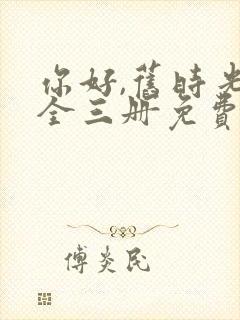 你好,舊時光
全三册免費
傅炎民